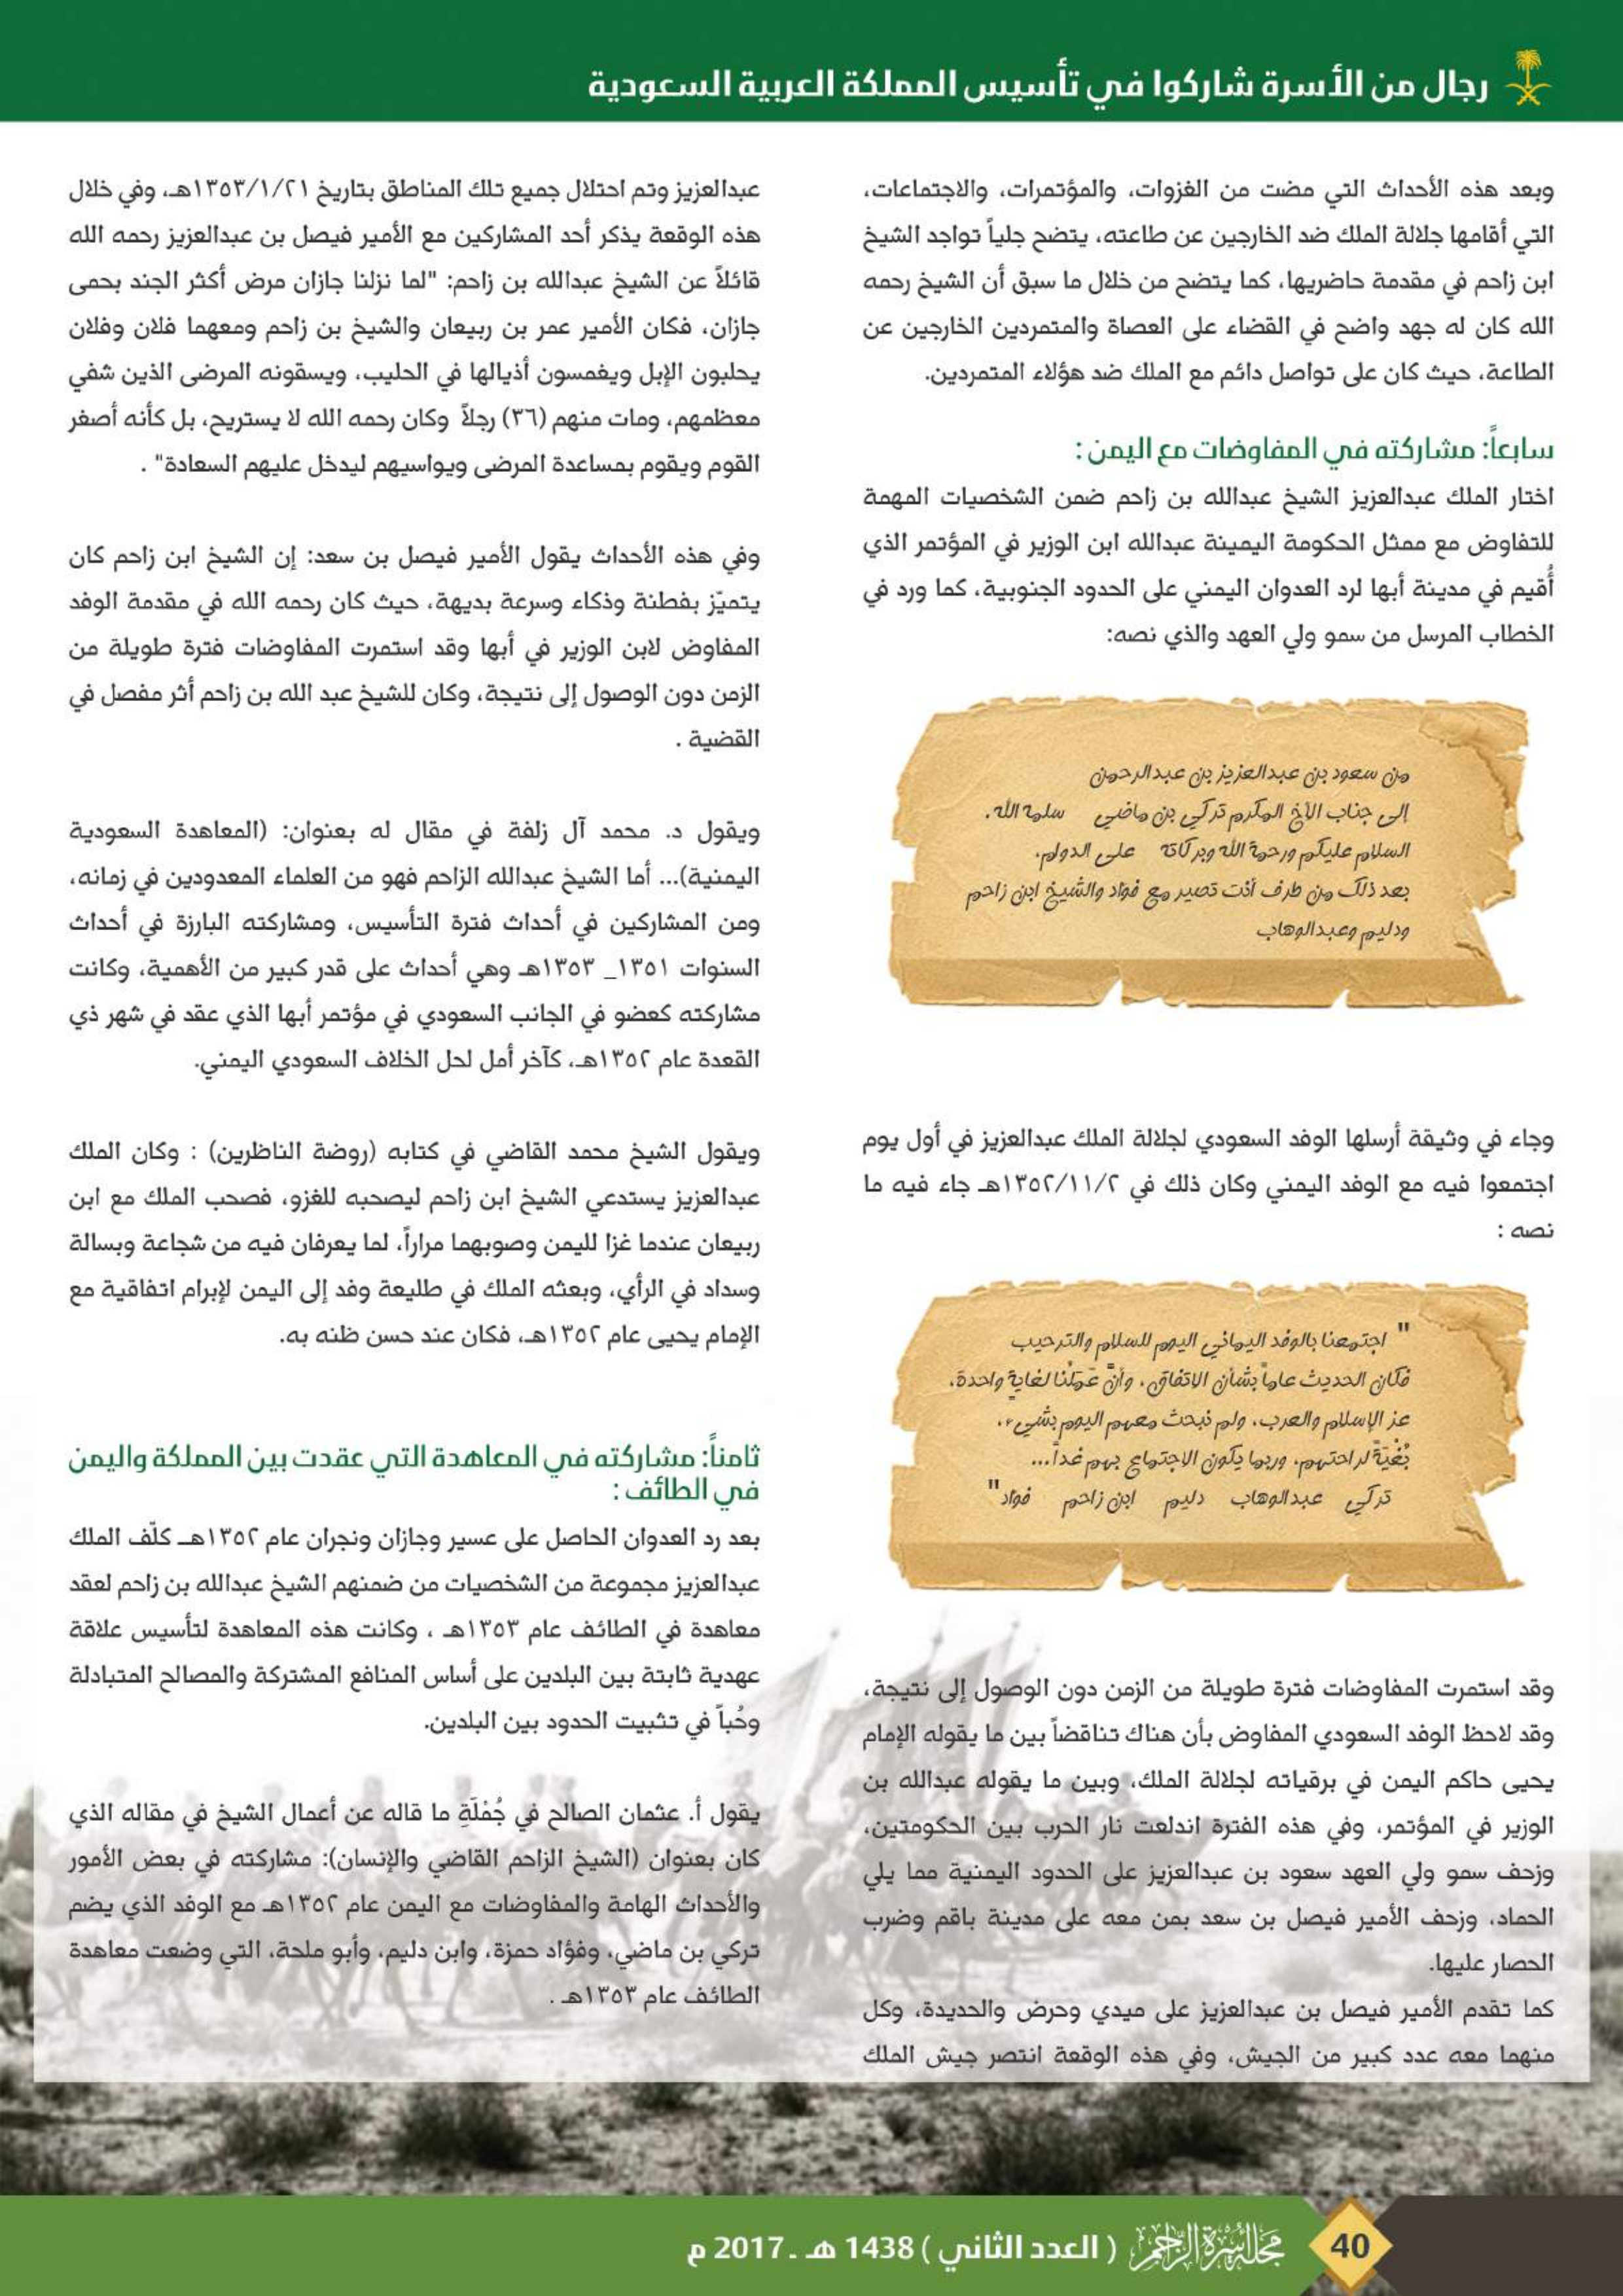 رجال من الأسرة شاركوا في تأسيس المملكة العربية السعودية
وبعد هذه الأحداث التي مضت من الغزوات، والمؤتمرات، والاجتماعات،
التي أقامها جلالة الملك ضد الخارجين عن طاعته، يتضح جلياً تواجد الشيخ
ابن زاحم في مقدمة حاضريها، كما يتضح من خلال ما سبق أن الشيخ رحمه
الله كان له جهد واضح في القضاء على العصاة والمتمردين الخارجين عن
الطاعة، حيث كان على تواصل دائم مع الملك ضد هؤلاء المتمردين.
سابعاً: مشاركته في المفاوضات مع اليمن :
اختار الملك عبدالعزيز الشيخ عبدالله بن زاحم ضمن الشخصيات المهمة
للتفاوض مع ممثل الحكومة اليمينة عبدالله ابن الوزير في المؤتمر الذي
أُقيم في مدينة أبها لرد العدوان اليمني على الحدود الجنوبية، كما ورد في
الخطاب المرسل من سمو ولي العهد والذي نصه:
من سعود بن عبدالعزيز بن عبدالرحمن
إلى جناب الأخ المكرم تركي بن ماضي سلمه الله.
السلام عليكم ورحمة الله وبركاته على الدوام.
بعد ذلك من طرف أنت تصير مع فواد والشيخ ابن زاحم
ودليم وعبدالوهاب
وجاء في وثيقة أرسلها الوفد السعودي لجلالة الملك عبدالعزيز في أول يوم
اجتمعوا فيه مع الوفد اليمني وكان ذلك في ١٣٥٢/١١/٢هـ جاء فيه ما
نصه :
" اجتمعنا بالوفد اليماني اليوم للسلام والترحيب
فكان الحديث عاماً بشأن الاتفاق، وأنَّ عَمَلنا لغاية واحدة،
عز الإسلام والعرب، ولم نبحث معهم اليوم بشيء،
بُغْيَةً لراحتهم، وربما يكون الاجتماع بهم غداً...
تركي عبدالوهاب دليم ابن زاحم فواد"
وقد استمرت المفاوضات فترة طويلة من الزمن دون الوصول إلى نتيجة،
وقد لاحظ الوفد السعودي المفاوض بأن هناك تناقضاً بين ما يقوله الإمام
يحيى حاكم اليمن في برقياته لجلالة الملك، وبين ما يقوله عبدالله بن
الوزير في المؤتمر، وفي هذه الفترة اندلعت نار الحرب بين الحكومتين،
وزحف سمو ولي العهد سعود بن عبدالعزيز على الحدود اليمنية مما يلي
الحماد، وزحف الأمير فيصل بن سعد بمن معه على مدينة باقم وضرب
الحصار عليها.
كما تقدم الأمير فيصل بن عبدالعزيز على ميدي وحرض والحديدة، وكل
منهما معه عدد كبير من الجيش، وفي هذه الوقعة انتصر جيش الملك
عبدالعزيز وتم احتلال جميع تلك المناطق بتاريخ ١٣٥٣/١/٢١هـ، وفي خلال
هذه الوقعة يذكر أحد المشاركين مع الأمير فيصل بن عبدالعزيز رحمه الله
قائلاً عن الشيخ عبدالله بن زاحم: "لما نزلنا جازان مرض أكثر الجند بحمى
جازان، فكان الأمير عمر بن ربيعان والشيخ بن زاحم ومعهما فلان وفلان
يحلبون الإبل ويغمسون أذيالها في الحليب، ويسقونه المرضى الذين شفي
معظمهم، ومات منهم (٣٦) رجلاً وكان رحمه الله لا يستريح، بل كأنه أصغر
القوم ويقوم بمساعدة المرضى ويواسيهم ليدخل عليهم السعادة" .
وفي هذه الأحداث يقول الأمير فيصل بن سعد: إن الشيخ ابن زاحم كان
يتميّز بفطنة وذكاء وسرعة بديهة، حيث كان رحمه الله في مقدمة الوفد
المفاوض لابن الوزير في أبها وقد استمرت المفاوضات فترة طويلة من
الزمن دون الوصول إلى نتيجة، وكان للشيخ عبد الله بن زاحم أثر مفصل في
القضية .
ويقول د. محمد آل زلفة في مقال له بعنوان: (المعاهدة السعودية
اليمنية)... أما الشيخ عبدالله الزاحم فهو من العلماء المعدودين في زمانه،
ومن المشاركين في أحداث فترة التأسيس، ومشاركته البارزة في أحداث
السنوات ١٣٥١_ ١٣٥٣هـ وهي أحداث على قدر كبير من الأهمية، وكانت
مشاركته كعضو في الجانب السعودي في مؤتمر أبها الذي عقد في شهر ذي
القعدة عام ١٣٥٢هـ، كآخر أمل لحل الخلاف السعودي اليمني.
ويقول الشيخ محمد القاضي في كتابه (روضة الناظرين) : وكان الملك
عبدالعزيز يستدعي الشيخ ابن زاحم ليصحبه للغزو، فصحب الملك مع ابن
ربيعان عندما غزا لليمن وصوبهما مراراً، لما يعرفان فيه من شجاعة وبسالة
وسداد في الرأي، وبعثه الملك في طليعة وفد إلى اليمن لإبرام اتفاقية مع
الإمام يحيى عام ١٣٥٢هـ، فكان عند حسن ظنه به.
ثامناً: مشاركته في المعاهدة التي عقدت بين المملكة واليمن
في الطائف :
بعد رد العدوان الحاصل على عسير وجازان ونجران عام ١٣٥٢هـ كلّف الملك
عبدالعزيز مجموعة من الشخصيات من ضمنهم الشيخ عبدالله بن زاحم لعقد
معاهدة في الطائف عام ١٣٥٣هـ ، وكانت هذه المعاهدة لتأسيس علاقة
عهدية ثابتة بين البلدين على أساس المنافع المشتركة والمصالح المتبادلة
وحُباً في تثبيت الحدود بين البلدين.
يقول أ. عثمان الصالح في جُمْلَةِ ما قاله عن أعمال الشيخ في مقاله الذي
كان بعنوان (الشيخ الزاحم القاضي والإنسان): مشاركته في بعض الأمور
والأحداث الهامة والمفاوضات مع اليمن عام ١٣٥٢هـ مع الوفد الذي يضم
تركي بن ماضي، وفؤاد حمزة، وابن دليم، وأبو ملحة، التي وضعت معاهدة
الطائف عام ١٣٥٣هـ .
40 مجلة أسرة الزاحم ( العدد الثاني ) 1438 هـ ـ 2017 م